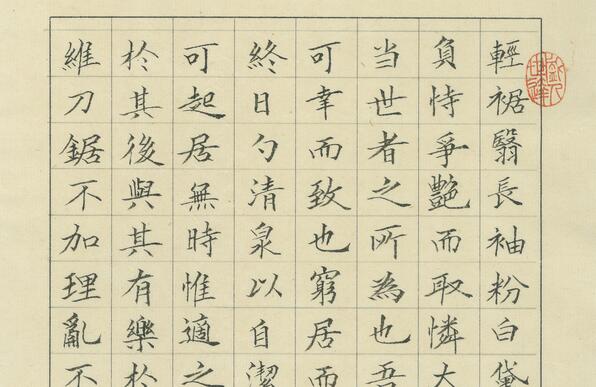 輕裾翳長袖粉白黛
負恃爭艷而取憐大
当世者之所為也吾
可幸而致也窮居而
終日勺清泉以自潔
可起居無時惟適之
於其後與其有樂於
維刀鋸不加理亂不